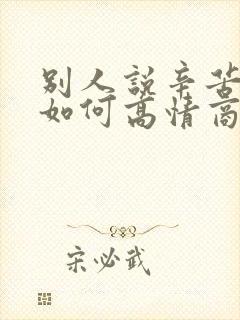 别人說辛苦
如何高情商
宋必武